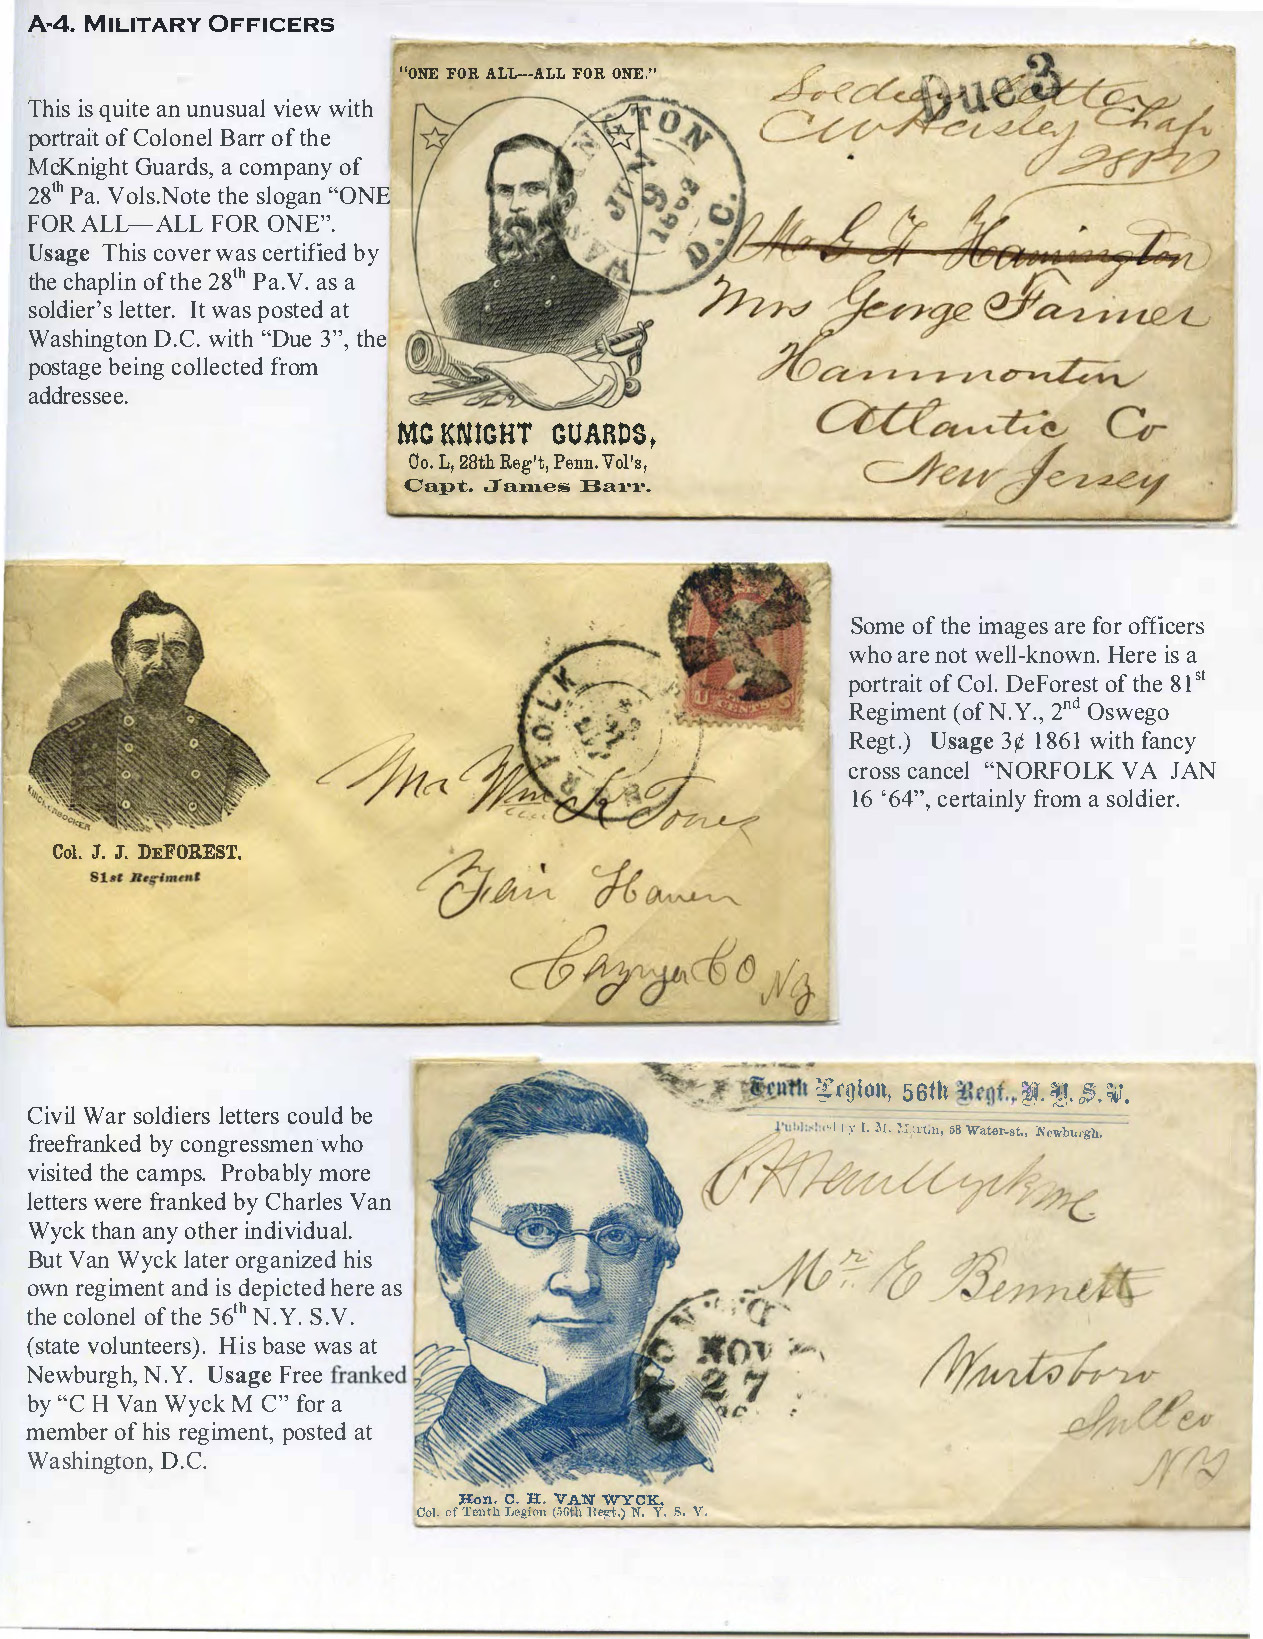 A-4. MILITARY OFFICERS
This is quite an unusual view with
portrait of Colonel Barr of the
McKnight Guards, a company of
28th Pa. Vols.Note the slogan “ONE
FOR ALL—ALL FOR ONE”.
Usage This cover was certified by
the chaplin of the 28th Pa.V. as a
soldier’s letter. It was posted at
Washington D.C. with “Due 3”, the
postage being collected from
addressee.
"ONE FOR ALL---ALL FOR ONE."
WASHINGTON D.C.
JUN
9
1862
Due 3
Soldiers letter
Chap
28 PV
Mrs George Farmer
Hammonton
Atlantic Co
New Jersey
MC KNIGHT GUARDS,
Co. L, 28th Reg't, Penn. Vol's,
Capt. James Barr.
KNICKERBOCKER
Col. J. J. DEFOREST,
81st Regiment
NORFOLK
Mr Wm K Jones
Fair Haven
Cayuga CO
NY
Some of the images are for officers
who are not well-known. Here is a
portrait of Col. DeForest of the 81st
Regiment (of N.Y., 2nd Oswego
Regt.) Usage 3¢ 1861 with fancy
cross cancel “NORFOLK VA JAN
16 ‘64”, certainly from a soldier.
Civil War soldiers letters could be
freefranked by congressmen who
visited the camps. Probably more
letters were franked by Charles Van
Wyck than any other individual.
But Van Wyck later organized his
own regiment and is depicted here as
the colonel of the 56th N.Y. S.V.
(state volunteers). His base was at
Newburgh, N.Y. Usage Free franked
by “C H Van Wyck M C” for a
member of his regiment, posted at
Washington, D.C.
Tenth Legion, 56th Regt., N. Y. S. V.
Published by I. M. Martin, 58 Water-st., Newburgh.
C H Van Wyck MC
Mr. E Bennett
Wurtsboro
Sull co
NY
NOV
27
Hon. C. H. VAN WYCK,
Col. of Tenth Legion (56th Regt.) N. Y. S. V.